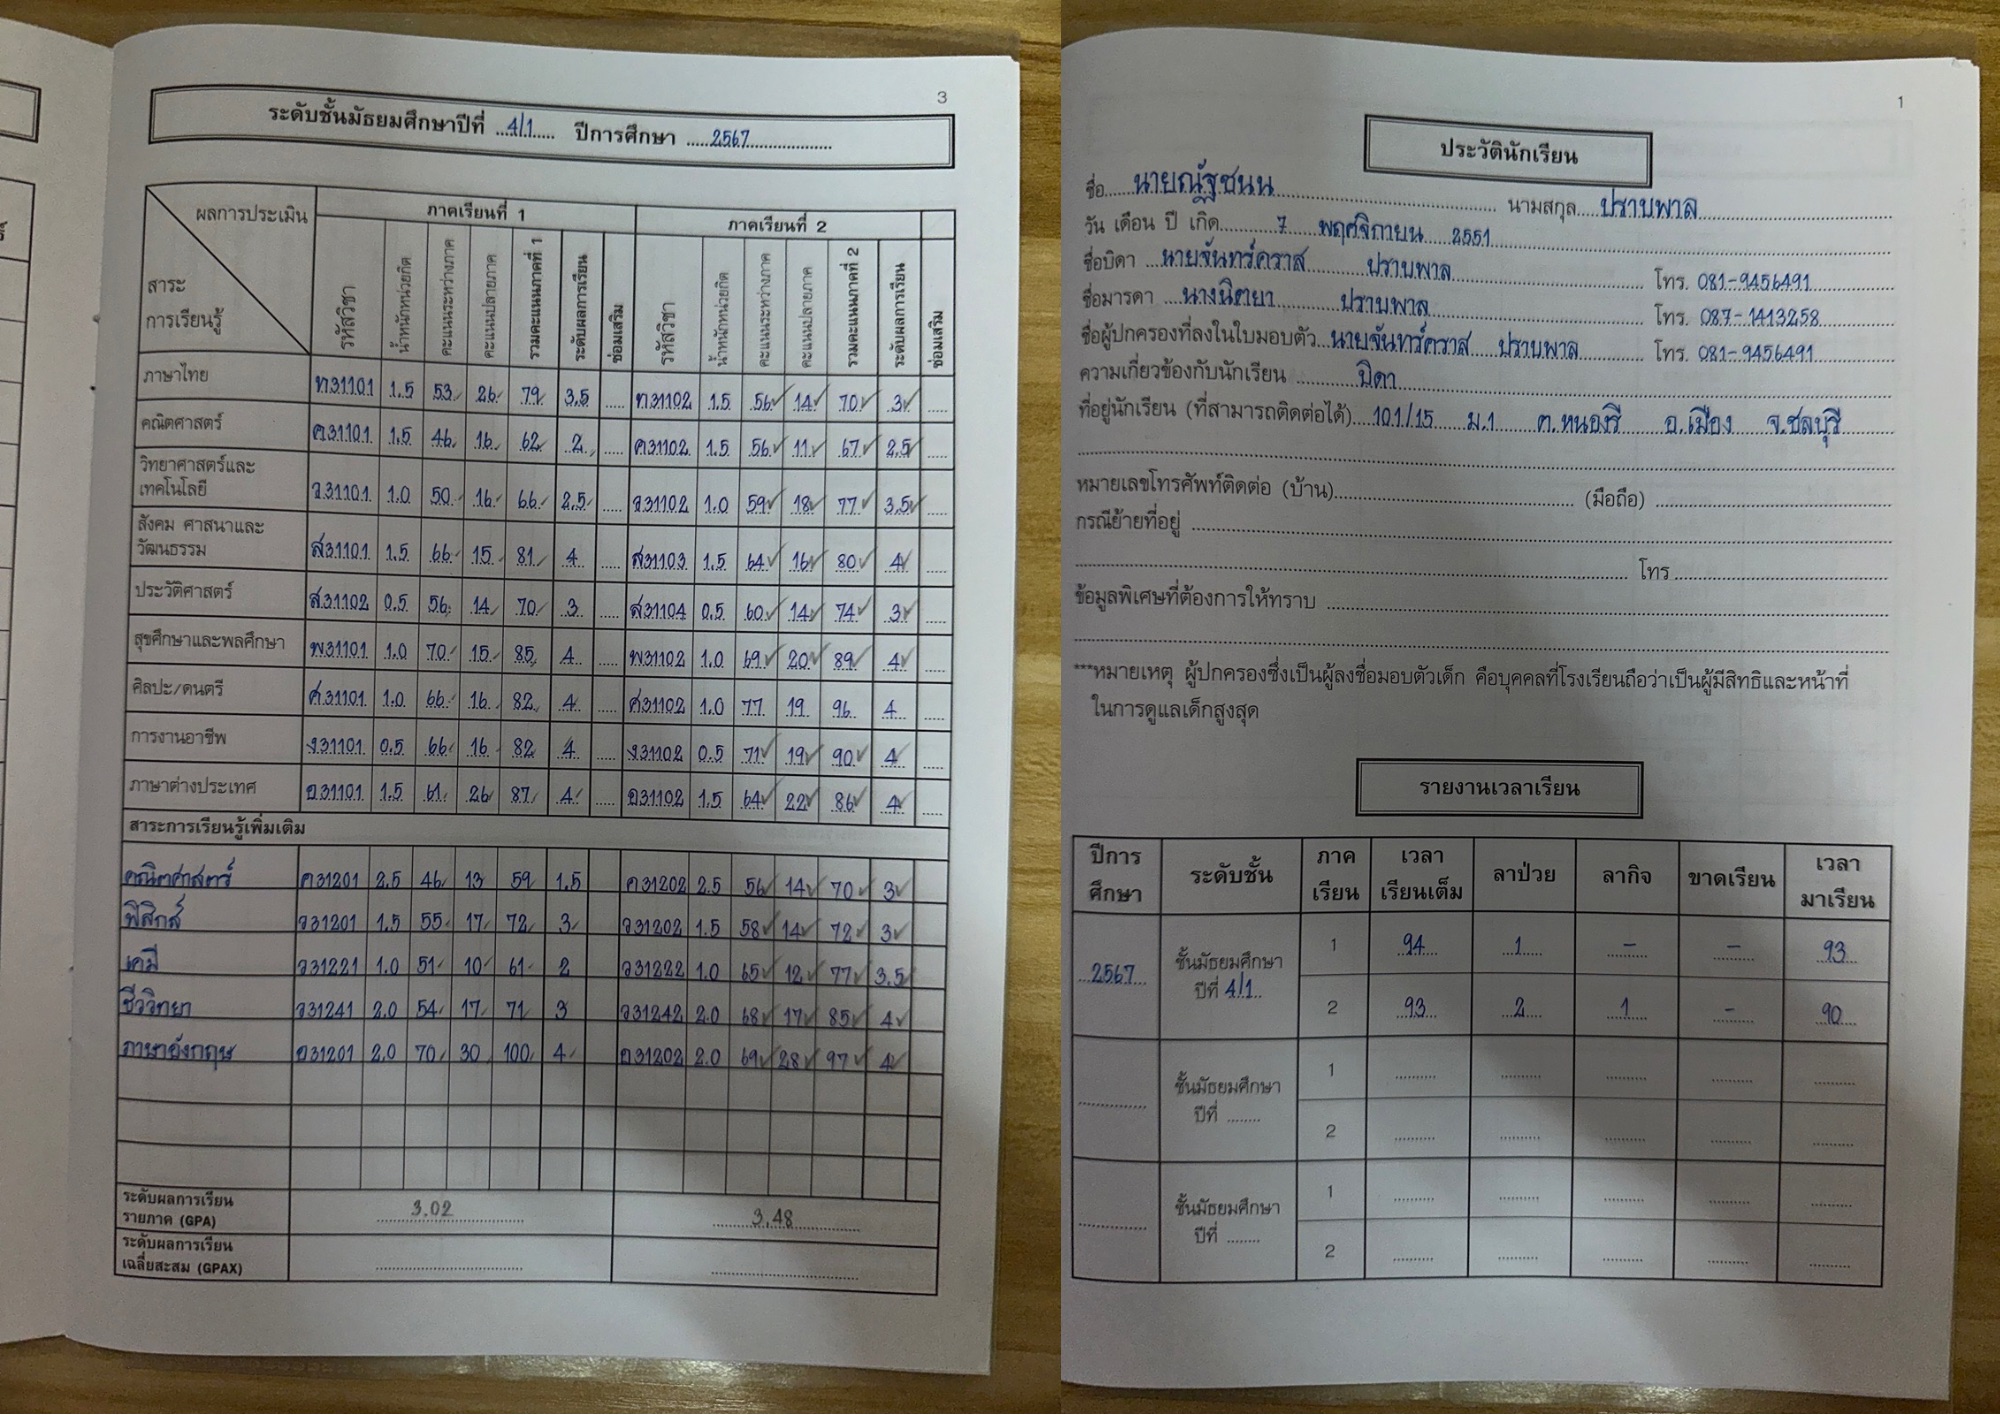 3
ระดับชั้นมัธยมศึกษาปีที่ ...4/1..... ปีการศึกษา .....2567..................
ผลการประเมิน
สาระ
การเรียนรู้
ภาคเรียนที่ 1
ภาคเรียนที่ 2
รหัสวิชา น้ำหนักหน่วยกิต คะแนนระหว่างภาค คะแนนปลายภาค รวมคะแนนภาคที่ 1 ระดับผลการเรียน ซ่อมเสริม รหัสวิชา น้ำหนักหน่วยกิต คะแนนระหว่างภาค คะแนนปลายภาค รวมคะแนนภาคที่ 2 ระดับผลการเรียน ซ่อมเสริม
ภาษาไทย ท31101 1.5 53 26 79 3.5 ..... ท31102 1.5 56 14 70 3 .....
คณิตศาสตร์ ค31101 1.5 46 16 62 2 ..... ค31102 1.5 56 11 67 2.5 .....
วิทยาศาสตร์และ
เทคโนโลยี ว31101 1.0 50 16 66 2.5 ..... ว31102 1.0 59 18 77 3.5 .....
สังคม ศาสนาและ
วัฒนธรรม ส31101 1.5 66 15 81 4 ..... ส31103 1.5 64 16 80 4 .....
ประวัติศาสตร์ ส31102 0.5 56 14 70 3 ..... ส31104 0.5 60 14 74 3 .....
สุขศึกษาและพลศึกษา พ31101 1.0 70 15 85 4 ..... พ31102 1.0 69 20 89 4 .....
ศิลปะ/ดนตรี ศ31101 1.0 66 16 82 4 ..... ศ31102 1.0 77 19 96 4 .....
การงานอาชีพ ง31101 0.5 66 16 82 4 ..... ง31102 0.5 71 19 90 4 .....
ภาษาต่างประเทศ อ31101 1.5 61 26 87 4 ..... อ31102 1.5 64 22 86 4 .....
สาระการเรียนรู้เพิ่มเติม
คณิตศาสตร์ ค31201 2.5 46 13 59 1.5 ค31202 2.5 56 14 70 3
ฟิสิกส์ ว31201 1.5 55 17 72 3 ว31202 1.5 58 14 72 3
เคมี ว31221 1.0 51 10 61 2 ว31222 1.0 65 12 77 3.5
ชีววิทยา ว31241 2.0 54 17 71 3 ว31242 2.0 68 17 85 4
ภาษาอังกฤษ อ31201 2.0 70 30 100 4 อ31202 2.0 69 28 97 4
ระดับผลการเรียน
รายภาค (GPA) 3.02 3.48
ระดับผลการเรียน
เฉลี่ยสะสม (GPAX)
1
ประวัตินักเรียน
ชื่อ......นายณัฐชนน.......... นามสกุล....ปราบพาล..........
วัน เดือน ปี เกิด.........7 พฤศจิกายน 2551..........
ชื่อบิดา ...นายจันทร์คราส ปราบพาล.......... โทร. 081-9456491
ชื่อมารดา ....นางนิตยา ปราบพาล.......... โทร. 087-1413258
ชื่อผู้ปกครองที่ลงในใบมอบตัว...นายจันทร์คราส ปราบพาล.......... โทร. 081-9456491
ความเกี่ยวข้องกับนักเรียน ..........บิดา..........
ที่อยู่นักเรียน (ที่สามารถติดต่อได้)....101/15 ม.1 ต.หนองรี อ.เมือง จ.ชลบุรี
หมายเลขโทรศัพท์ติดต่อ (บ้าน).......... (มือถือ) ..........
กรณีย้ายที่อยู่ ..........
.......... โทร ..........
ข้อมูลพิเศษที่ต้องการให้ทราบ ..........
***หมายเหตุ ผู้ปกครองซึ่งเป็นผู้ลงชื่อมอบตัวเด็ก คือบุคคลที่โรงเรียนถือว่าเป็นผู้มีสิทธิและหน้าที่
ในการดูแลเด็กสูงสุด
รายงานเวลาเรียน
ปีการศึกษา ระดับชั้น ภาคเรียน เวลาเรียนเต็ม ลาป่วย ลากิจ ขาดเรียน เวลามาเรียน
2567 ชั้นมัธยมศึกษา
ปีที่ 4/1
1 94 1 - - 93
2 93 2 1 - 90
ชั้นมัธยมศึกษา
ปีที่ ........
1
2
ชั้นมัธยมศึกษา
ปีที่ ........
1
2